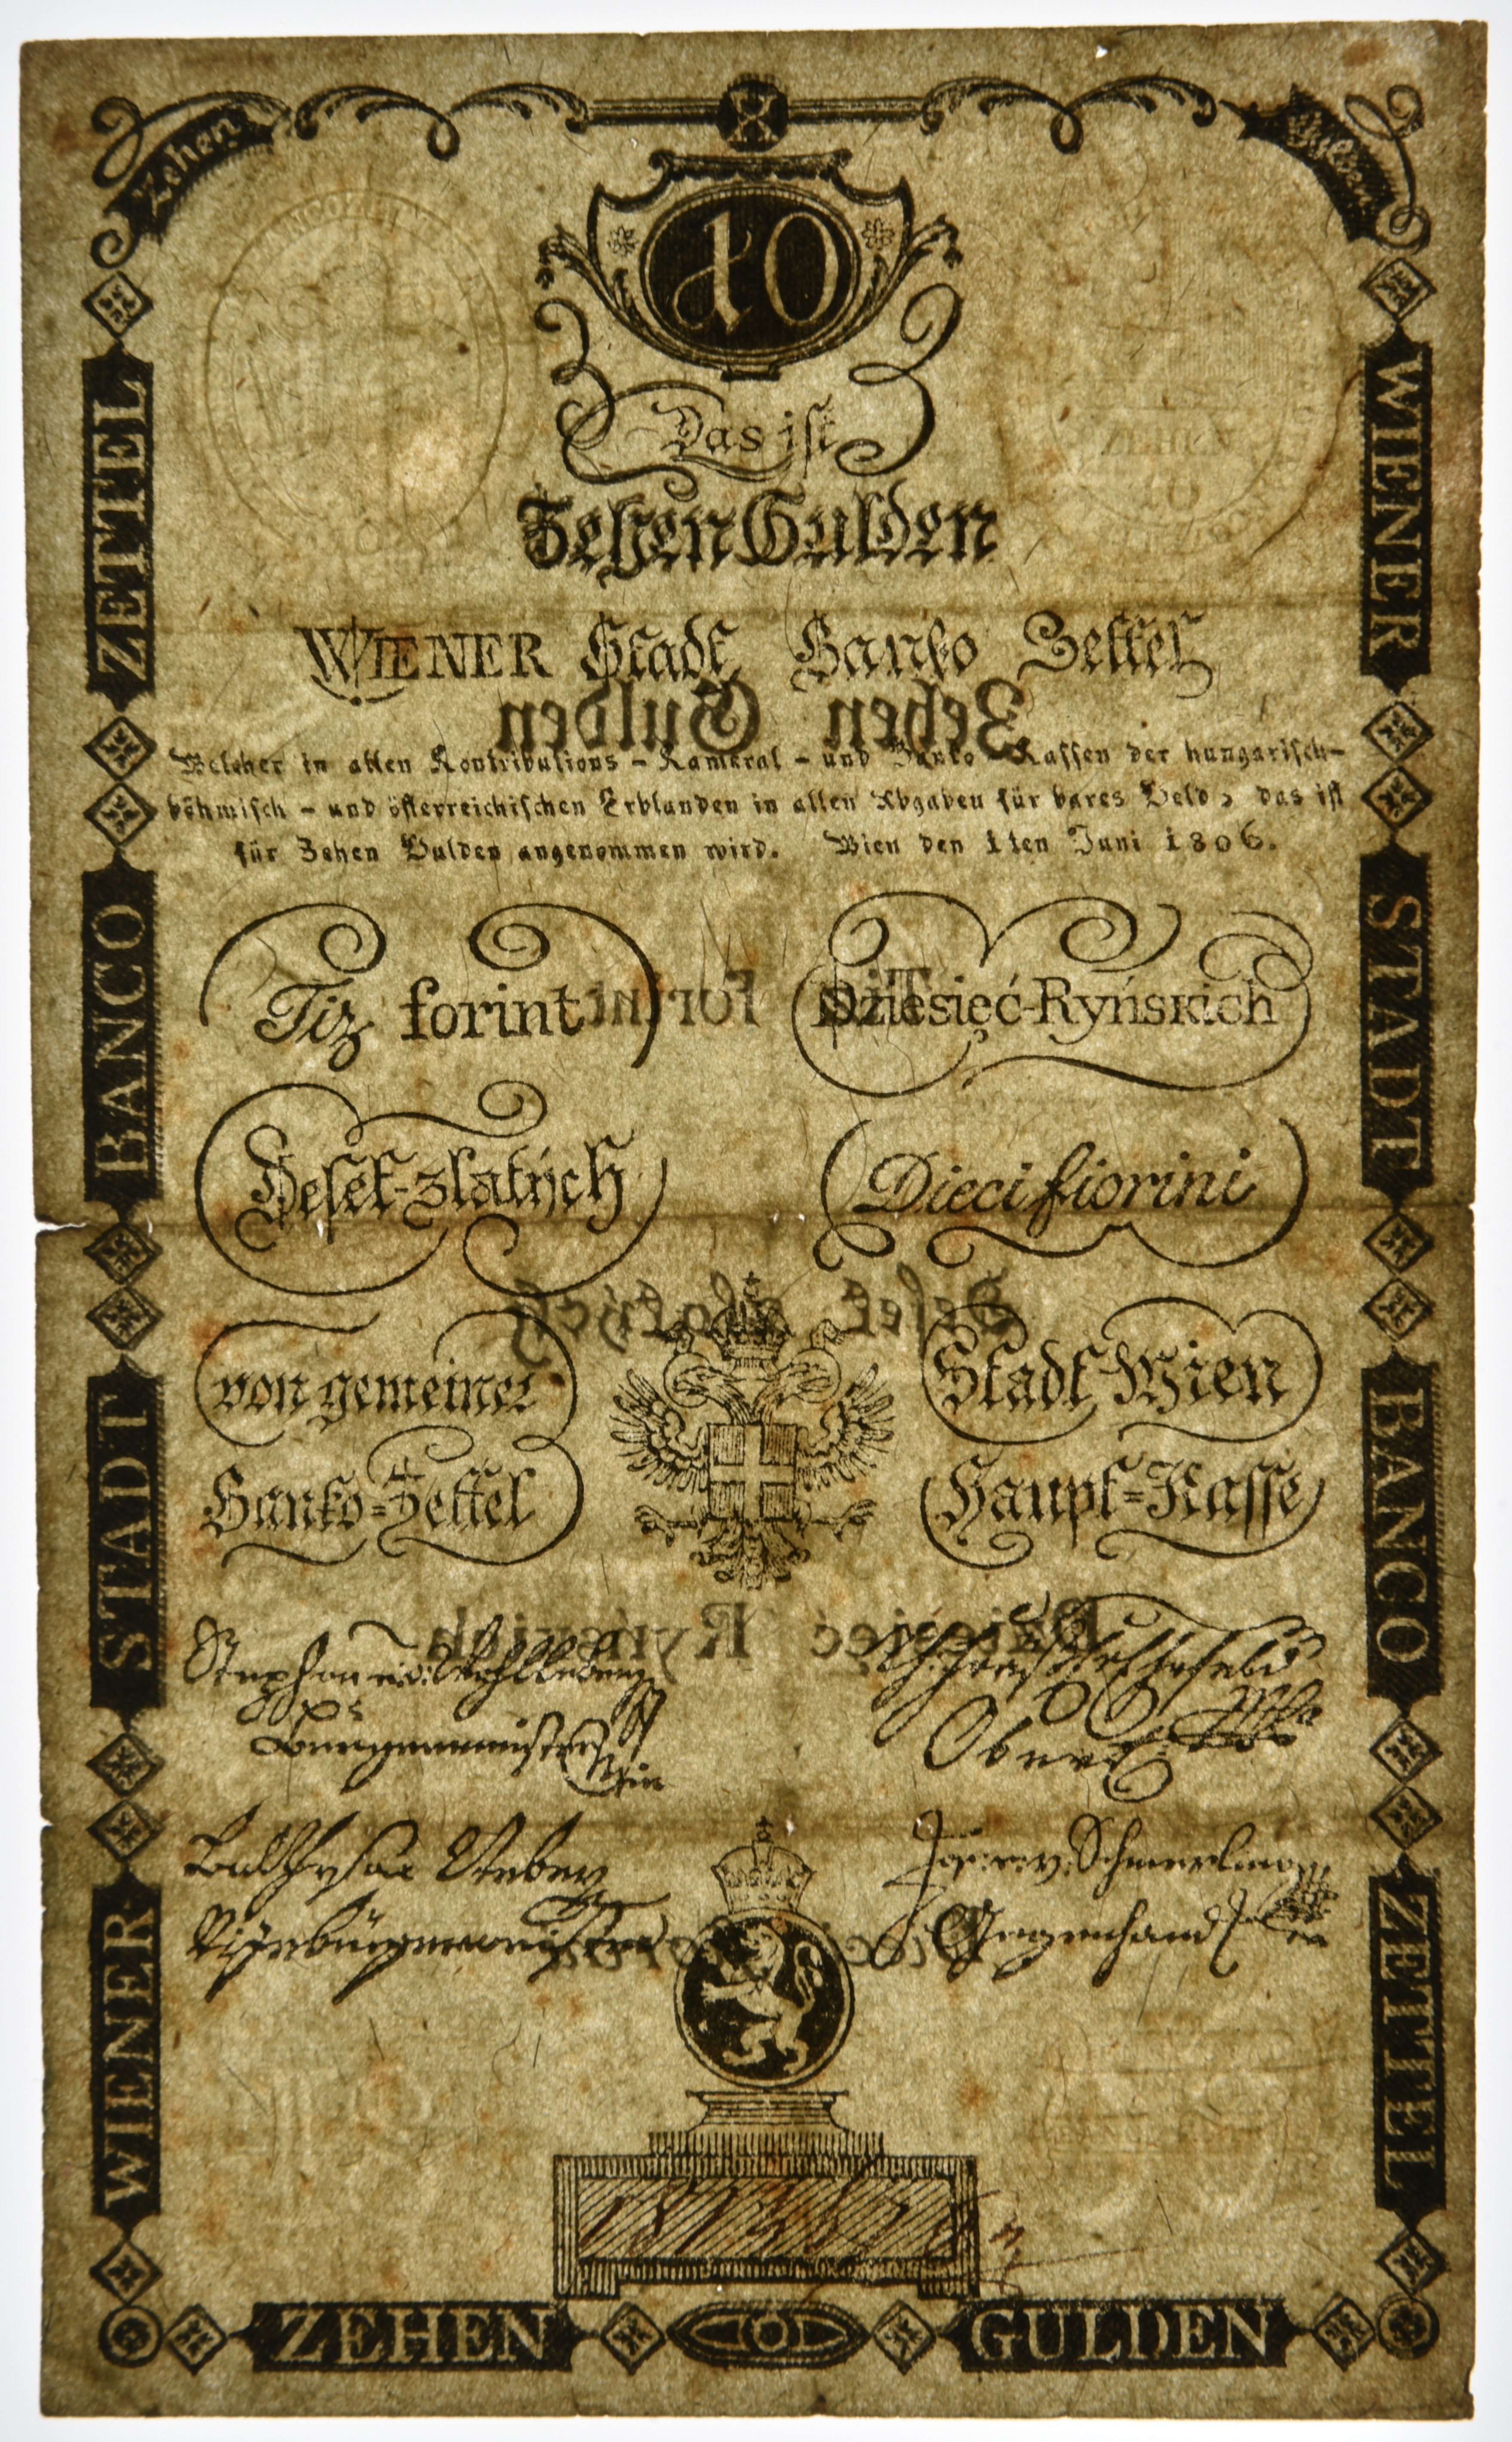 Zehen
X
Gulden
10
Das ist
Zehen Gulden
WIENER Stadt Banko Zettel
Zehen Gulden
Welcher in allen Kontributions - Kameral - und Banko - Kassen der hungarisch-
böhmisch - und österreichischen Erblanden in allen Abgaben für bares Geld, das ist
für Zehen Gulden angenommen wird. Wien den 1ten Juni 1806.
Tiz forint
Dziesięć-Ryńskich
Tiz forint
Deset-zlatých
Dieci fiorini
Deset zlatých
von gemeiner
Stadt Wien
Banko=Zettel
Haupt=Kasse
Dziesięć Ryńskich
Stephan
Ober
Balthasar
Vizebürgermeister
Gegenhand
WIENER STADT BANCO ZETTEL
WIENER STADT BANCO ZETTEL
ZEHEN GULDEN